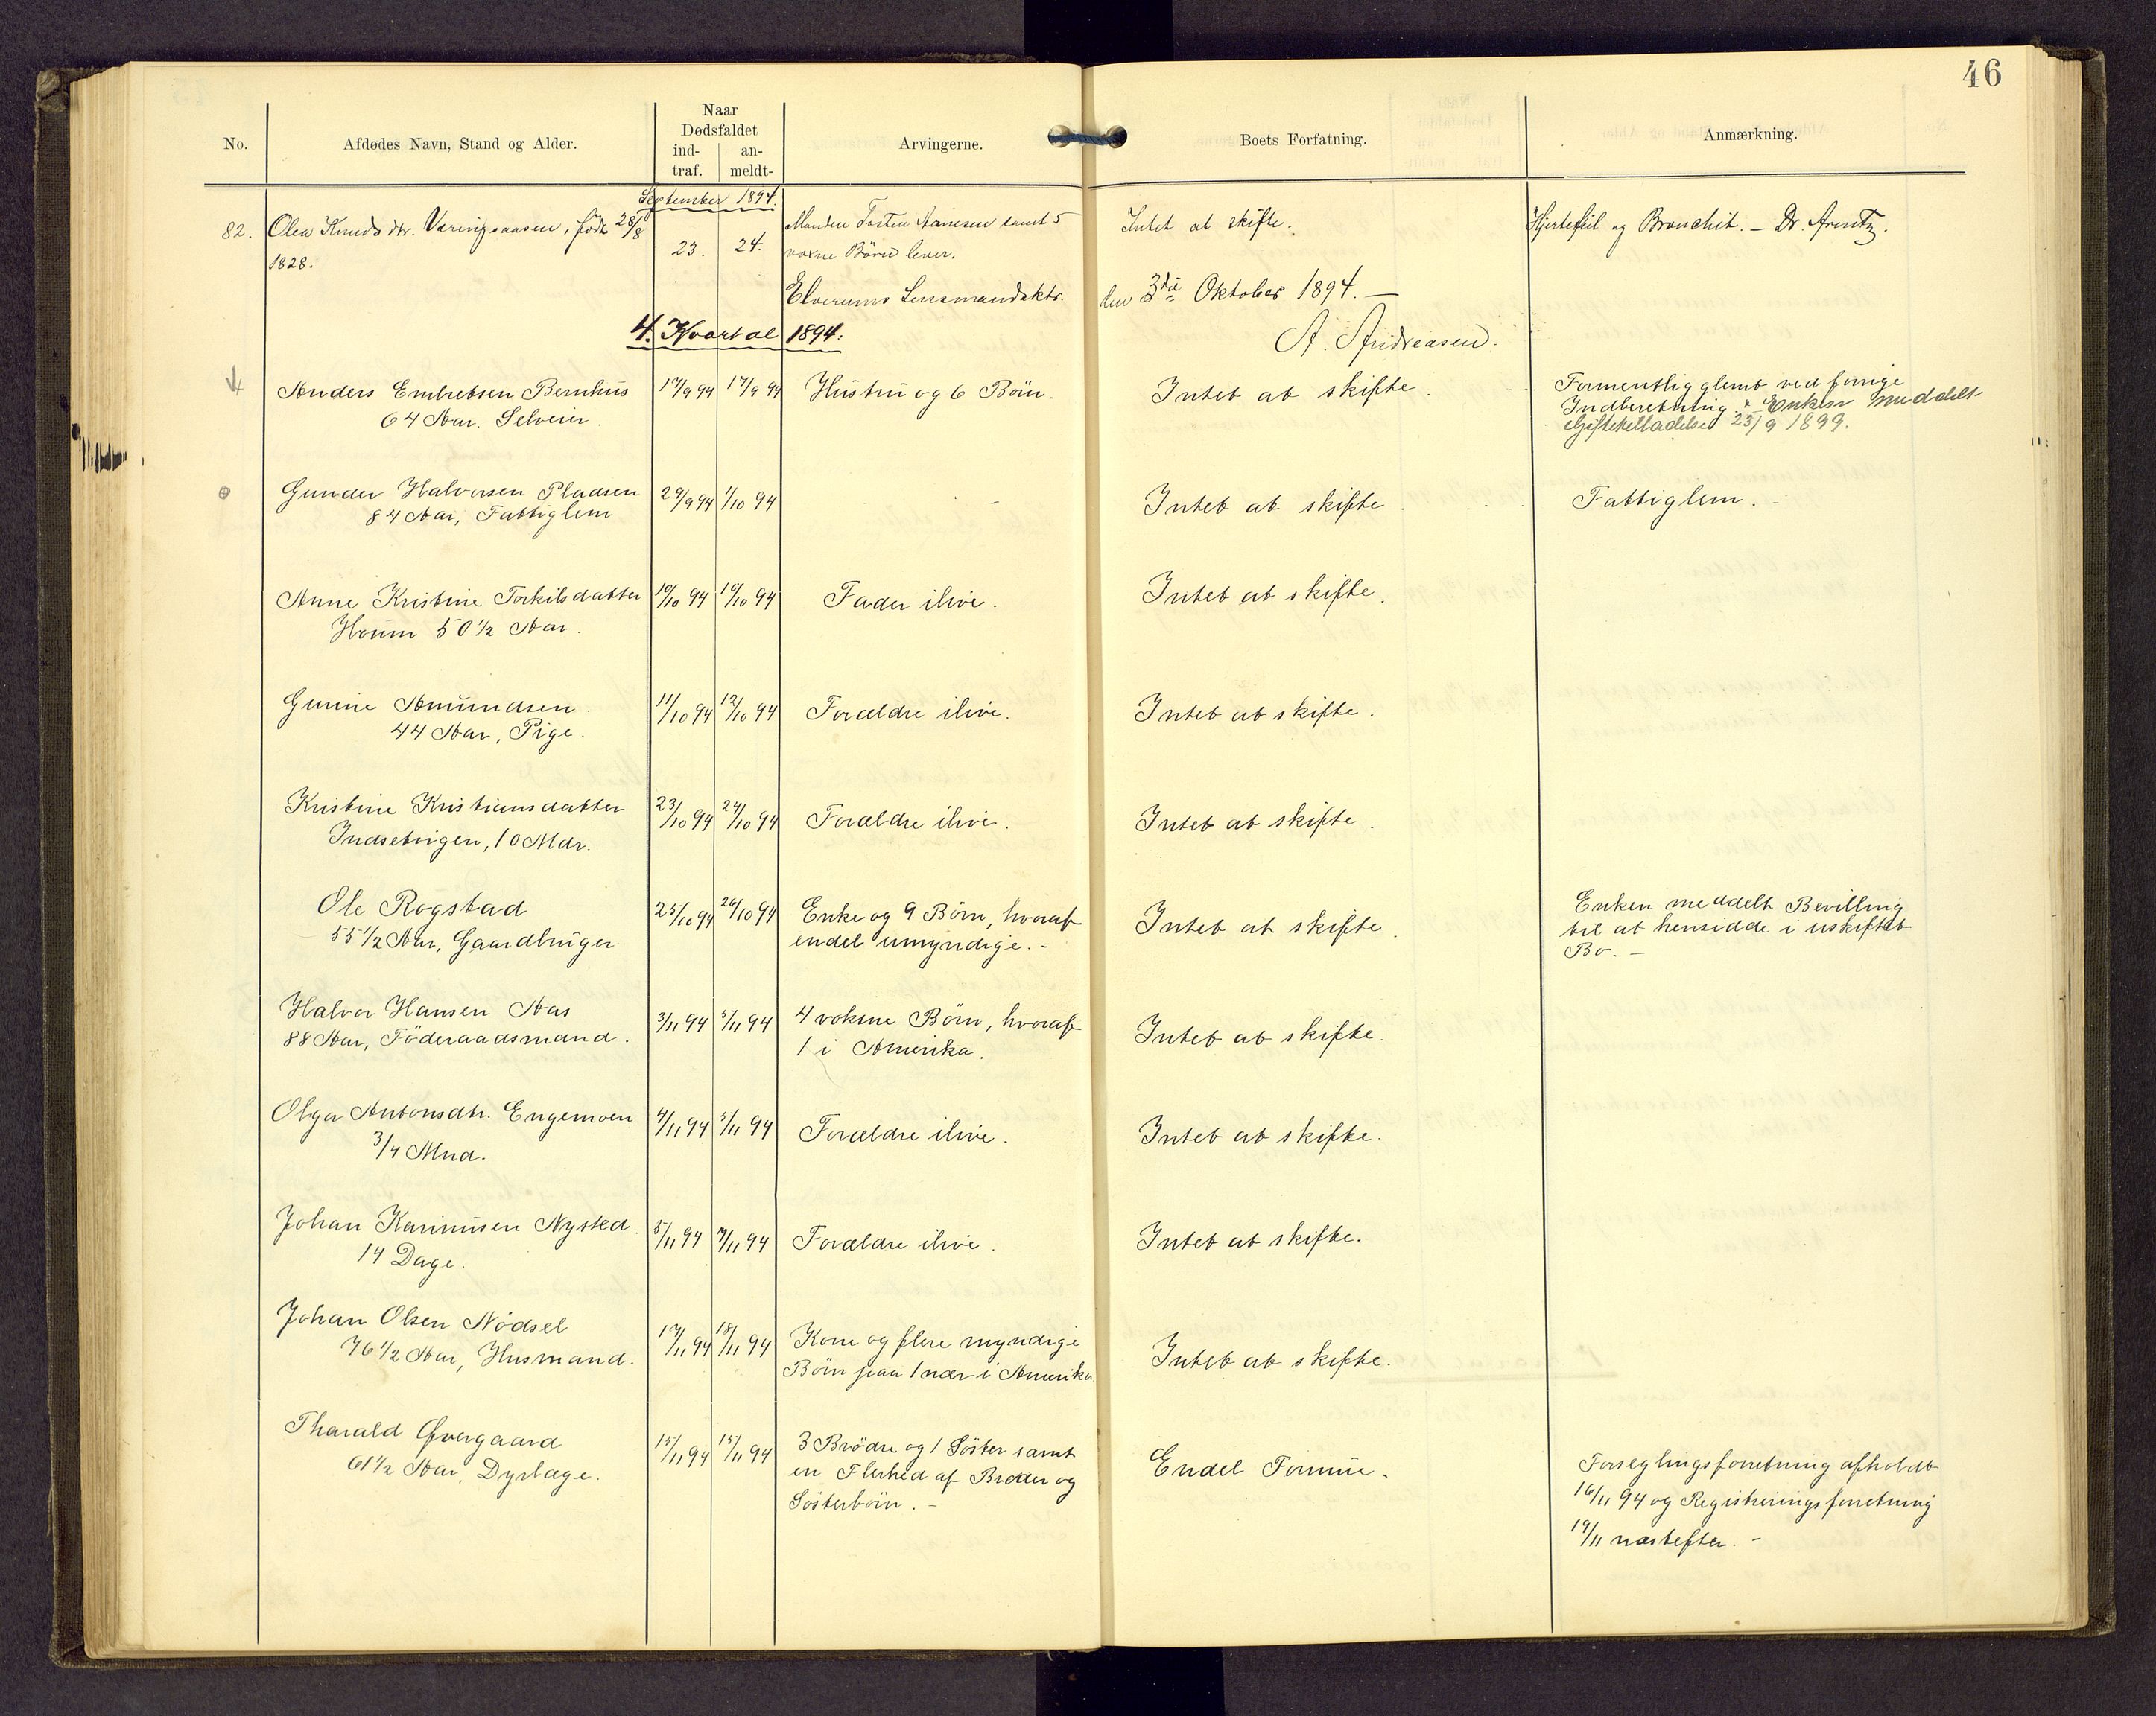 46
No.
Afdødes Navn, Stand og Alder.
Naar
Dødsfaldet
ind-
traf.
an-
meldt-
Arvingerne.
Boets Forfatning.
Anmærkning.
September 1894.
82. Olea Knudsdtr. Væringsaasen, født 28/8
1828.
23. 24.
Manden Tosten Aamesen samt 5
voxne Börn lever.
Intet at skifte.
Hjertefeil og Bronchit. – Dr. Arentz.
Elverums Lensmandsktr. den 3die Oktober 1894. –
A. Andreasen.
4. Kvartal 1894.
Anders Embretsen Bernhus
64 Aar. Selveier.
17/9 94 17/9 94
Hustru og 6 Börn.
Intet at skifte.
Formentlig glemt ved forrige
Indberetning. Enken meddelt
Giftetilladelse 23/9 1899.
Gunder Halvorsen Pladsen
84 Aar, Fattiglem
29/9 94 1/10 94
–
Intet at skifte.
Fattiglem. –
Anne Kristine Torkilsdatter
Houm 50 1/2 Aar.
10/10 94 10/10 94
Fader ilive.
Intet at skifte.
Gunine Amundsen.
44 Aar, Pige.
11/10 94 12/10 94
Forældre ilive.
Intet at skifte.
Kristine Kristiansdatter
Indsetvigen, 10 Mdr.
23/10 94 24/10 94
Forældre ilive.
Intet at skifte.
Ole Rogstad
55 1/2 Aar, Gaardbruger
25/10 94 26/10 94
Enke og 9 Börn, hvoraf
endel umyndige. –
Intet at skifte.
Enken meddelt Bevilling
til at hensidde i uskiftet
Bo. –
Halvor Hansen Aas
88 Aar, Föderaadsmand.
3/11 94 5/11 94
4 voksne Börn, hvoraf
1 i Amerika.
Intet at skifte.
Olga Antonsdtr. Engemoen
3/4 Mnd.
4/11 94 5/11 94
Forældre ilive.
Intet at skifte.
Johan Karinusen Nysted.
14 Dage.
5/11 94 7/11 94
Forældre ilive.
Intet at skifte.
Johan Olsen Nödsel
76 1/2 Aar, Husmand.
17/11 94 18/11 94
Kone og flere myndige
Börn paa 1 nær i Amerika
Intet at skifte.
Tharald Øvergaard
61 1/2 Aar, Dyrlæge.
15/11 94 15/11 94
3 Brödre og 1 Söster samt
en Flerhed af Broder og
Sösterbörn. –
Endel Formue.
Forseglingsforretning afholdt
16/11 94 og Registreringsforretning
19/11 næstefter. –